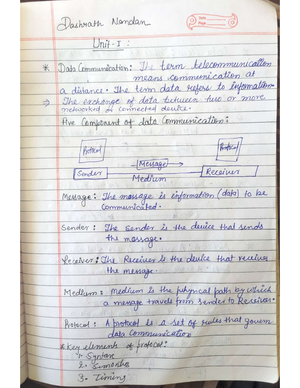 Dashrath Nandan
Date
Page
Unit-I :
* Data Communication : The term telecommunication
means communication at
a distance. The term data refers to information
⇒ The exchange of data between two or more
networked & connected device.
five Component of data Communication :
Protocol Protocol
Message
Sender Receiver
Medium
Message : The message is information (data) to be
communicated.
Sender : The Sender is the device that sends
the message.
Receiver : The Receiver is the device that receives
the message.
Medium : Medium is the physical path by which
a message travels from sender to Receiver.
Protocol : A protocol is a set of rules that govern
data communication
* Key elements of protocol :
1. Syntax
2. Semantics
3. Timing